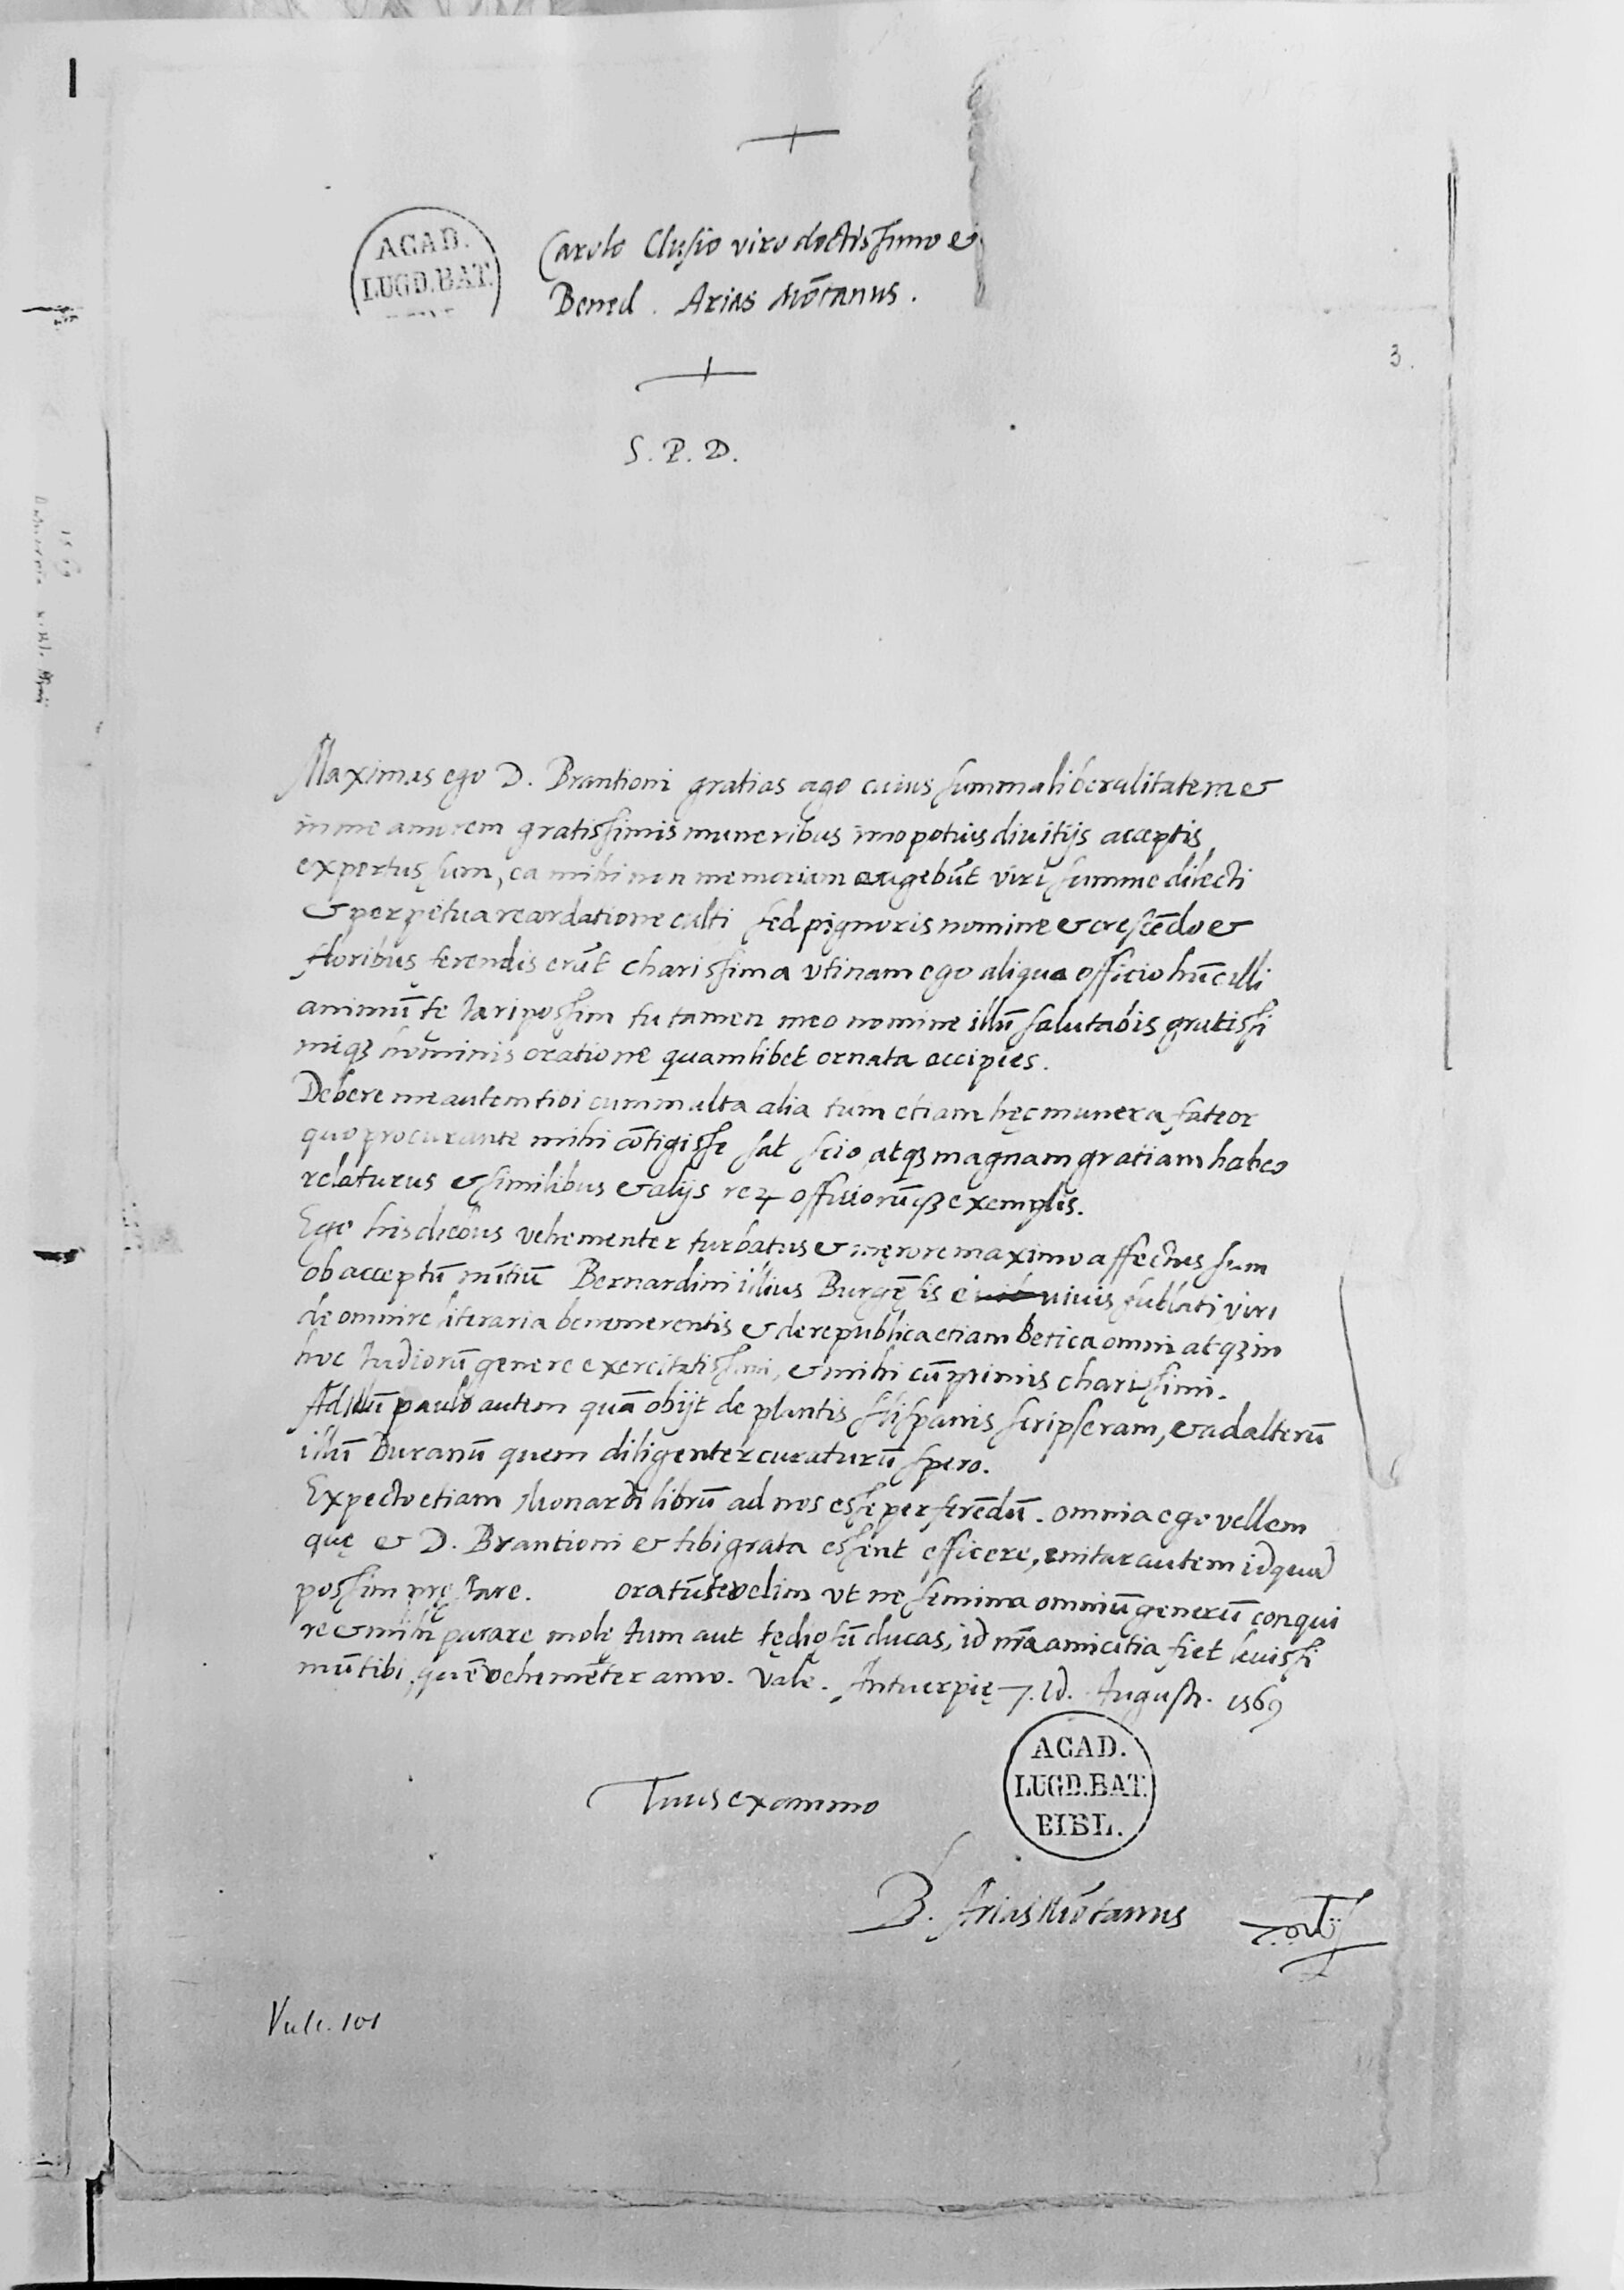 ACAD.
LUGD.BAT.
Carolo Clusio viro doctissimo &
Bened. Arias Mōtanus.
3.
S. P. D.
Maximas ego D. Brantioni gratias ago cuius summā liberalitatem &
in me amorem gratissimis muneribus imo potius diuitijs acceptis
expertus sum, ea mihi non memoriam augebūt viri summe dilecti
& perpetua recordatione culti sed pignoris nomine & crescēdo &
floribus ferendis erūt charissima vtinam ego aliquo officio hūc illi
animū testari possim tu tamen meo nomine illū salutabis gratissi
miqꝫ hominis oratione quamlibet ornata accipies.
Debere me autem tibi cum multa alia tum etiam hęc munera fateor
quo procurante mihi cōtigisse sat scio atqꝫ magnam gratiam habeo
relaturus & similibus & alijs reꝝ officiorūqꝫ exemplis.
Ego his diebus vehementer turbatus & męrore maximo affectus sum
ob acceptū nūtiū Bernardini illius Burgēsis e viuis sublati viri
de omni re literaria benemerentis & de republica etiam Betica omni atqꝫ in
hoc studiorū genere exercitatissimi, & mihi cū primis charissimi.
Ad illū paulo autem quā obijt de plantis Hispanis scripseram, & ad alterū
illū Duranū quem diligenter curaturū spero.
Expecto etiam Monardi librū ad nos esse perferēdū. omnia ego vellem
quę & D. Brantioni & tibi grata essent efficere, enitar autem id quod
possim pręstare. oratū te velim vt ne semina omniū generū conqui
re & mihi parare molestum aut tędiosū ducas, id nr̄a amicitia fiet leuissi
mū tibi, quē vehemēter amo. Vale. Antuerpię 7. Id. August. 1569
Tuus ex animo
ACAD.
LUGD.BAT.
BIBL.
B. Arias Mōtanus
Vulc. 101